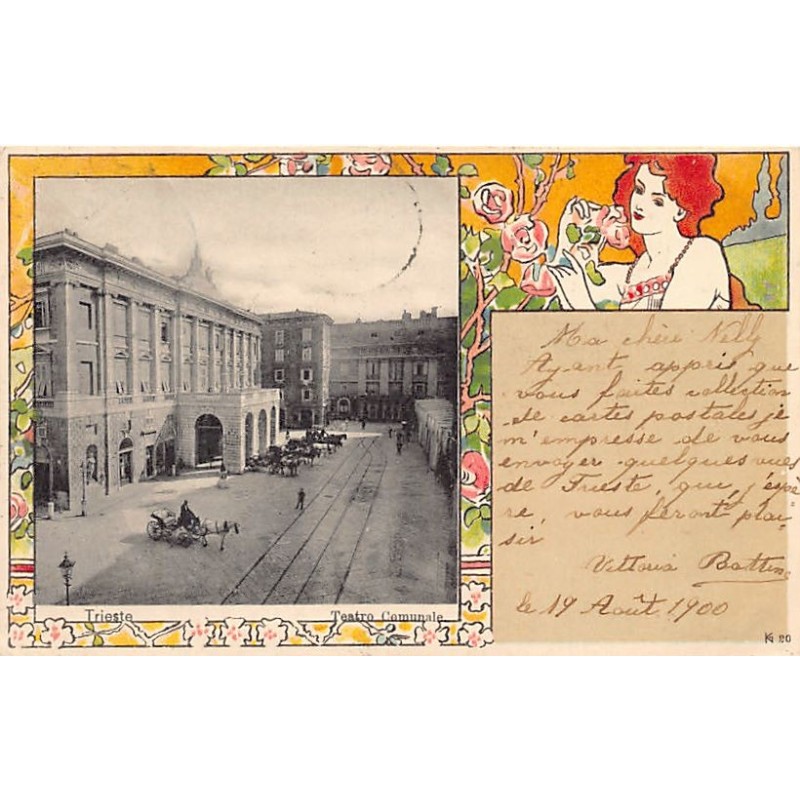 Trieste
Teatro Comunale
Ma chère Nelly
Ayant appris que
vous faites collection
de cartes postales je
m'empresse de vous
envoyer quelques vues
de Trieste, qui, j'espè-
re, vous feront plai-
sir
Vittoria
le 19 Août 1900
KG 20